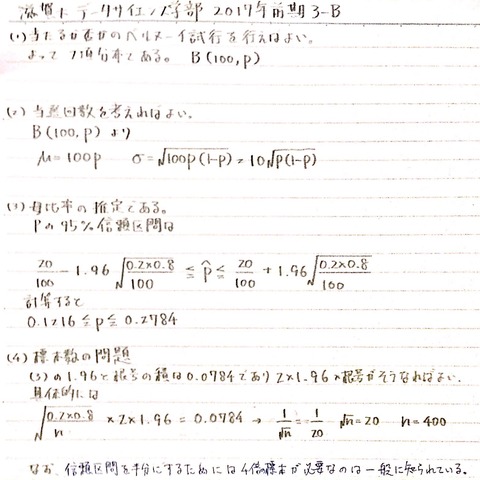 滋賀大 データサイエンス学部 2017年前期 3-B
(1) 当たるか否かのベルヌーイ試行を行えばよい。
よって 二項分布である。 B(100,p)
(2) 当選回数を考えればよい。
B(100,p) より
μ=100p σ=√100p(1-p) = 10√p(1-p)
(3) 母比率の推定である。
Pの95%信頼区間は
20/100 - 1.96 √0.2×0.8/100 ≦ p̂ ≦ 20/100 + 1.96 √0.2×0.8/100
計算すると
0.1216 ≦ p ≦ 0.2784
(4) 標本数の問題
(3)の1.96と根号の積は0.0784であり 2×1.96×根号がそうなればよい。
具体的には
√0.2×0.8/n × 2×1.96 = 0.0784 → 1/√n = 1/20 √n=20 n=400
なお、信頼区間を半分にするためには4倍標本が必要なのは一般に知られている。